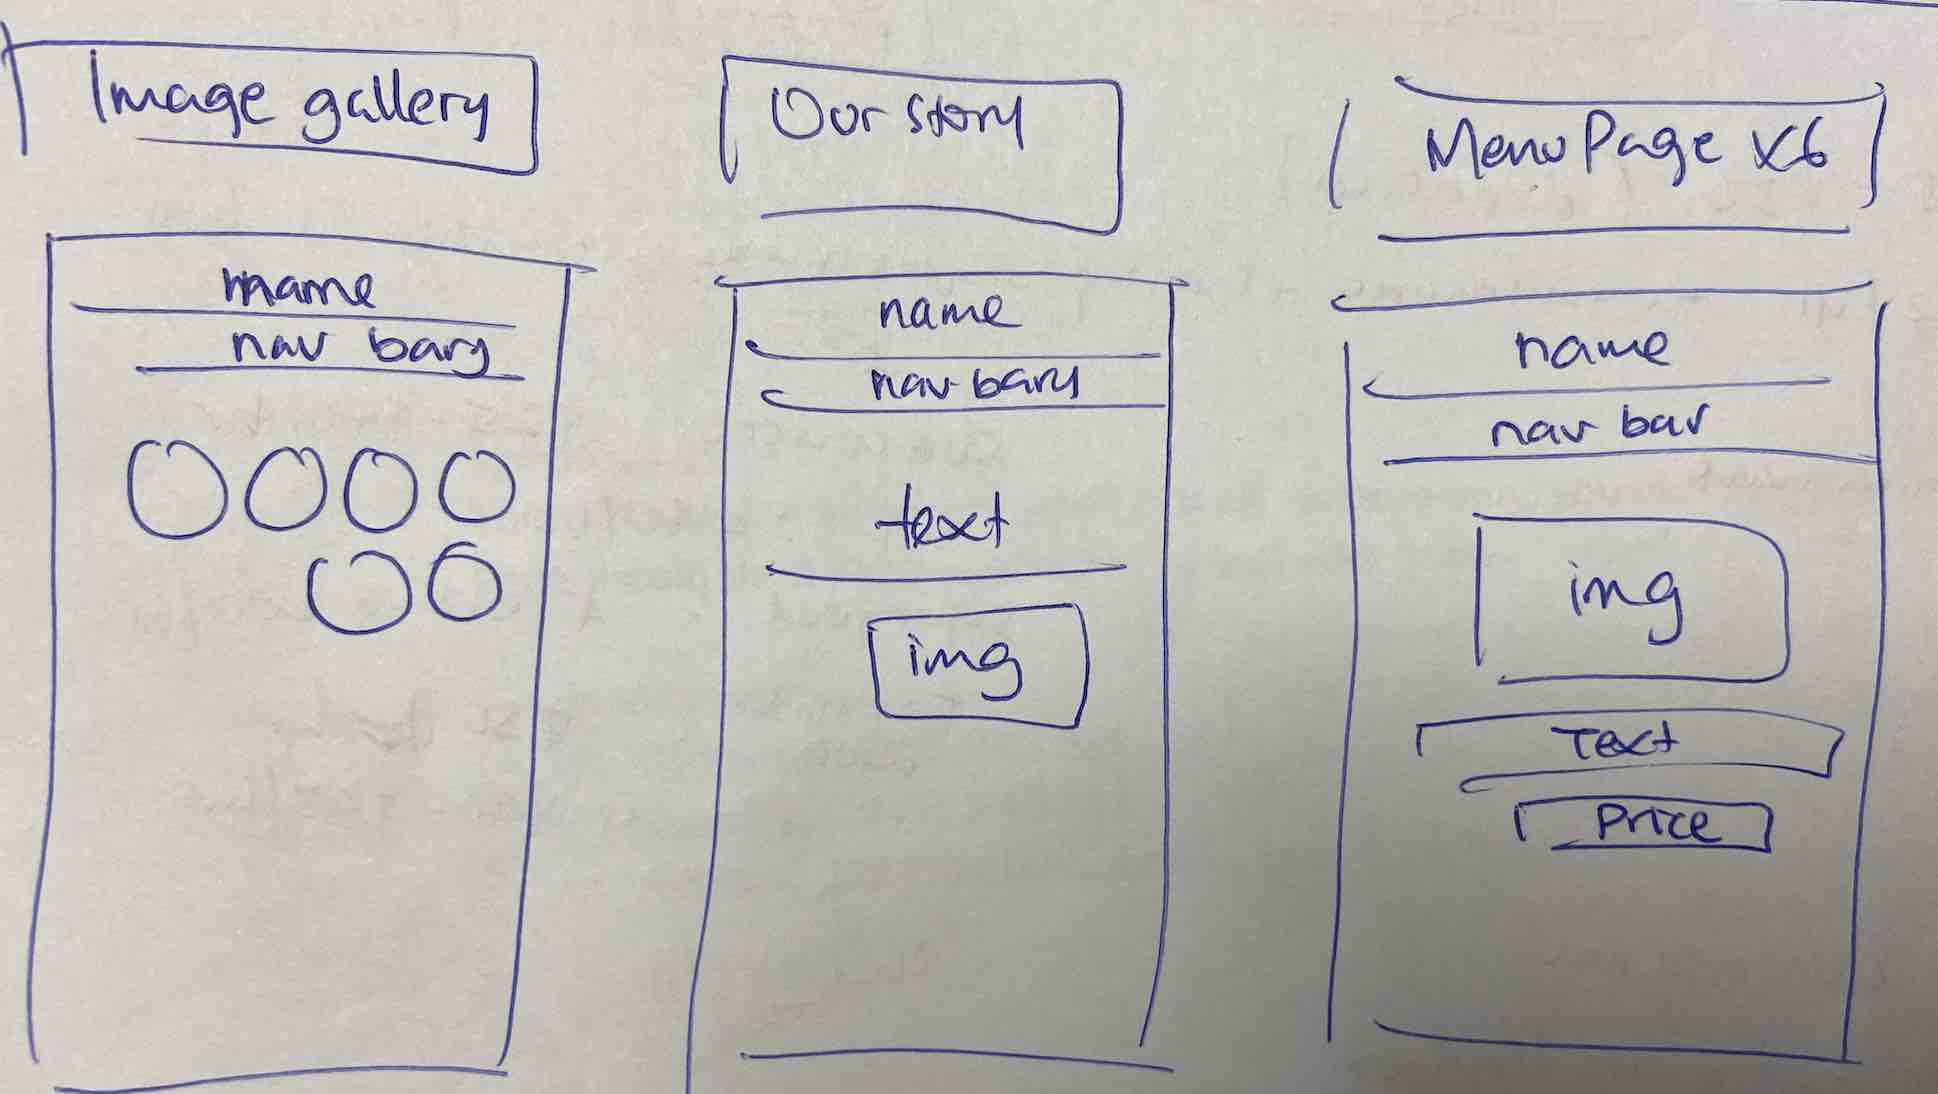 Image gallery
name
nav bary
Our story
name
nav bary
text
img
Menu Page x6
name
nav bar
img
Text
Price